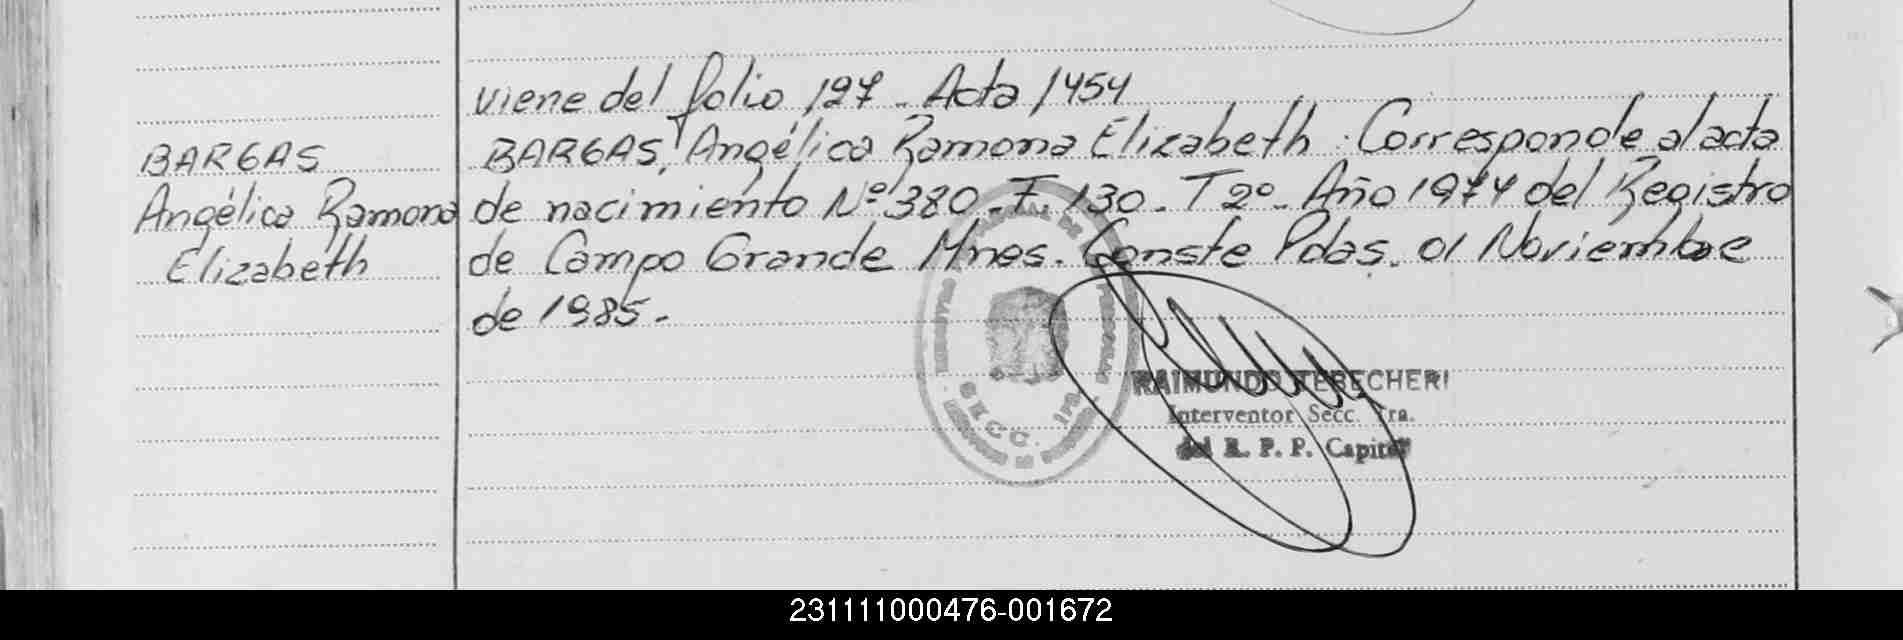 viene del folio 127 - Acta 1454
BARGAS
Angélica Ramona
Elizabeth
BARGAS, Angélica Ramona Elizabeth. Corresponde al acta
de nacimiento Nº 380 - F. 130 - T 2º - Año 1974 del Registro
de Campo Grande Mnes. Conste Pdas. 01 Noviembre
de 1985.-
SECC. 1ra.
RAIMUNDO TEBECHERI
Interventor Secc. 1ra.
del R. P. P. Capital
231111000476-001672